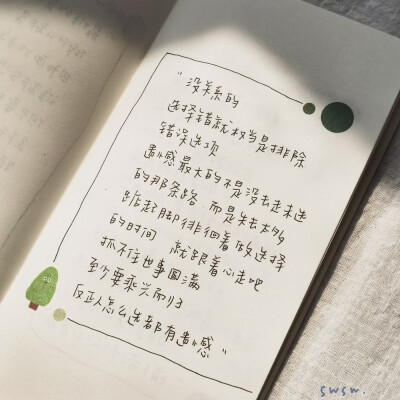 "没关系的
选择错就权当是排除
错误选项
遗憾感最大的不是没去走未选
的那条路 而是失去太多
踮起脚徘徊着做选择
的时间 就跟着心走吧
抓不住世事圆满
至少要乘兴而归
反正人怎么选都有遗憾感"
swsw.